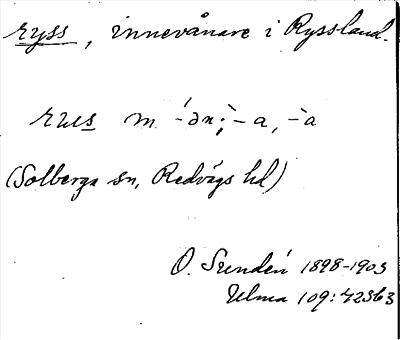 ryss, innevånare i Ryssland.
rues m. -́ən; -̀a, -̀a
(Solberga sn, Redvägs hd)
O. Sundén 1898-1903
Ulma 109:42363